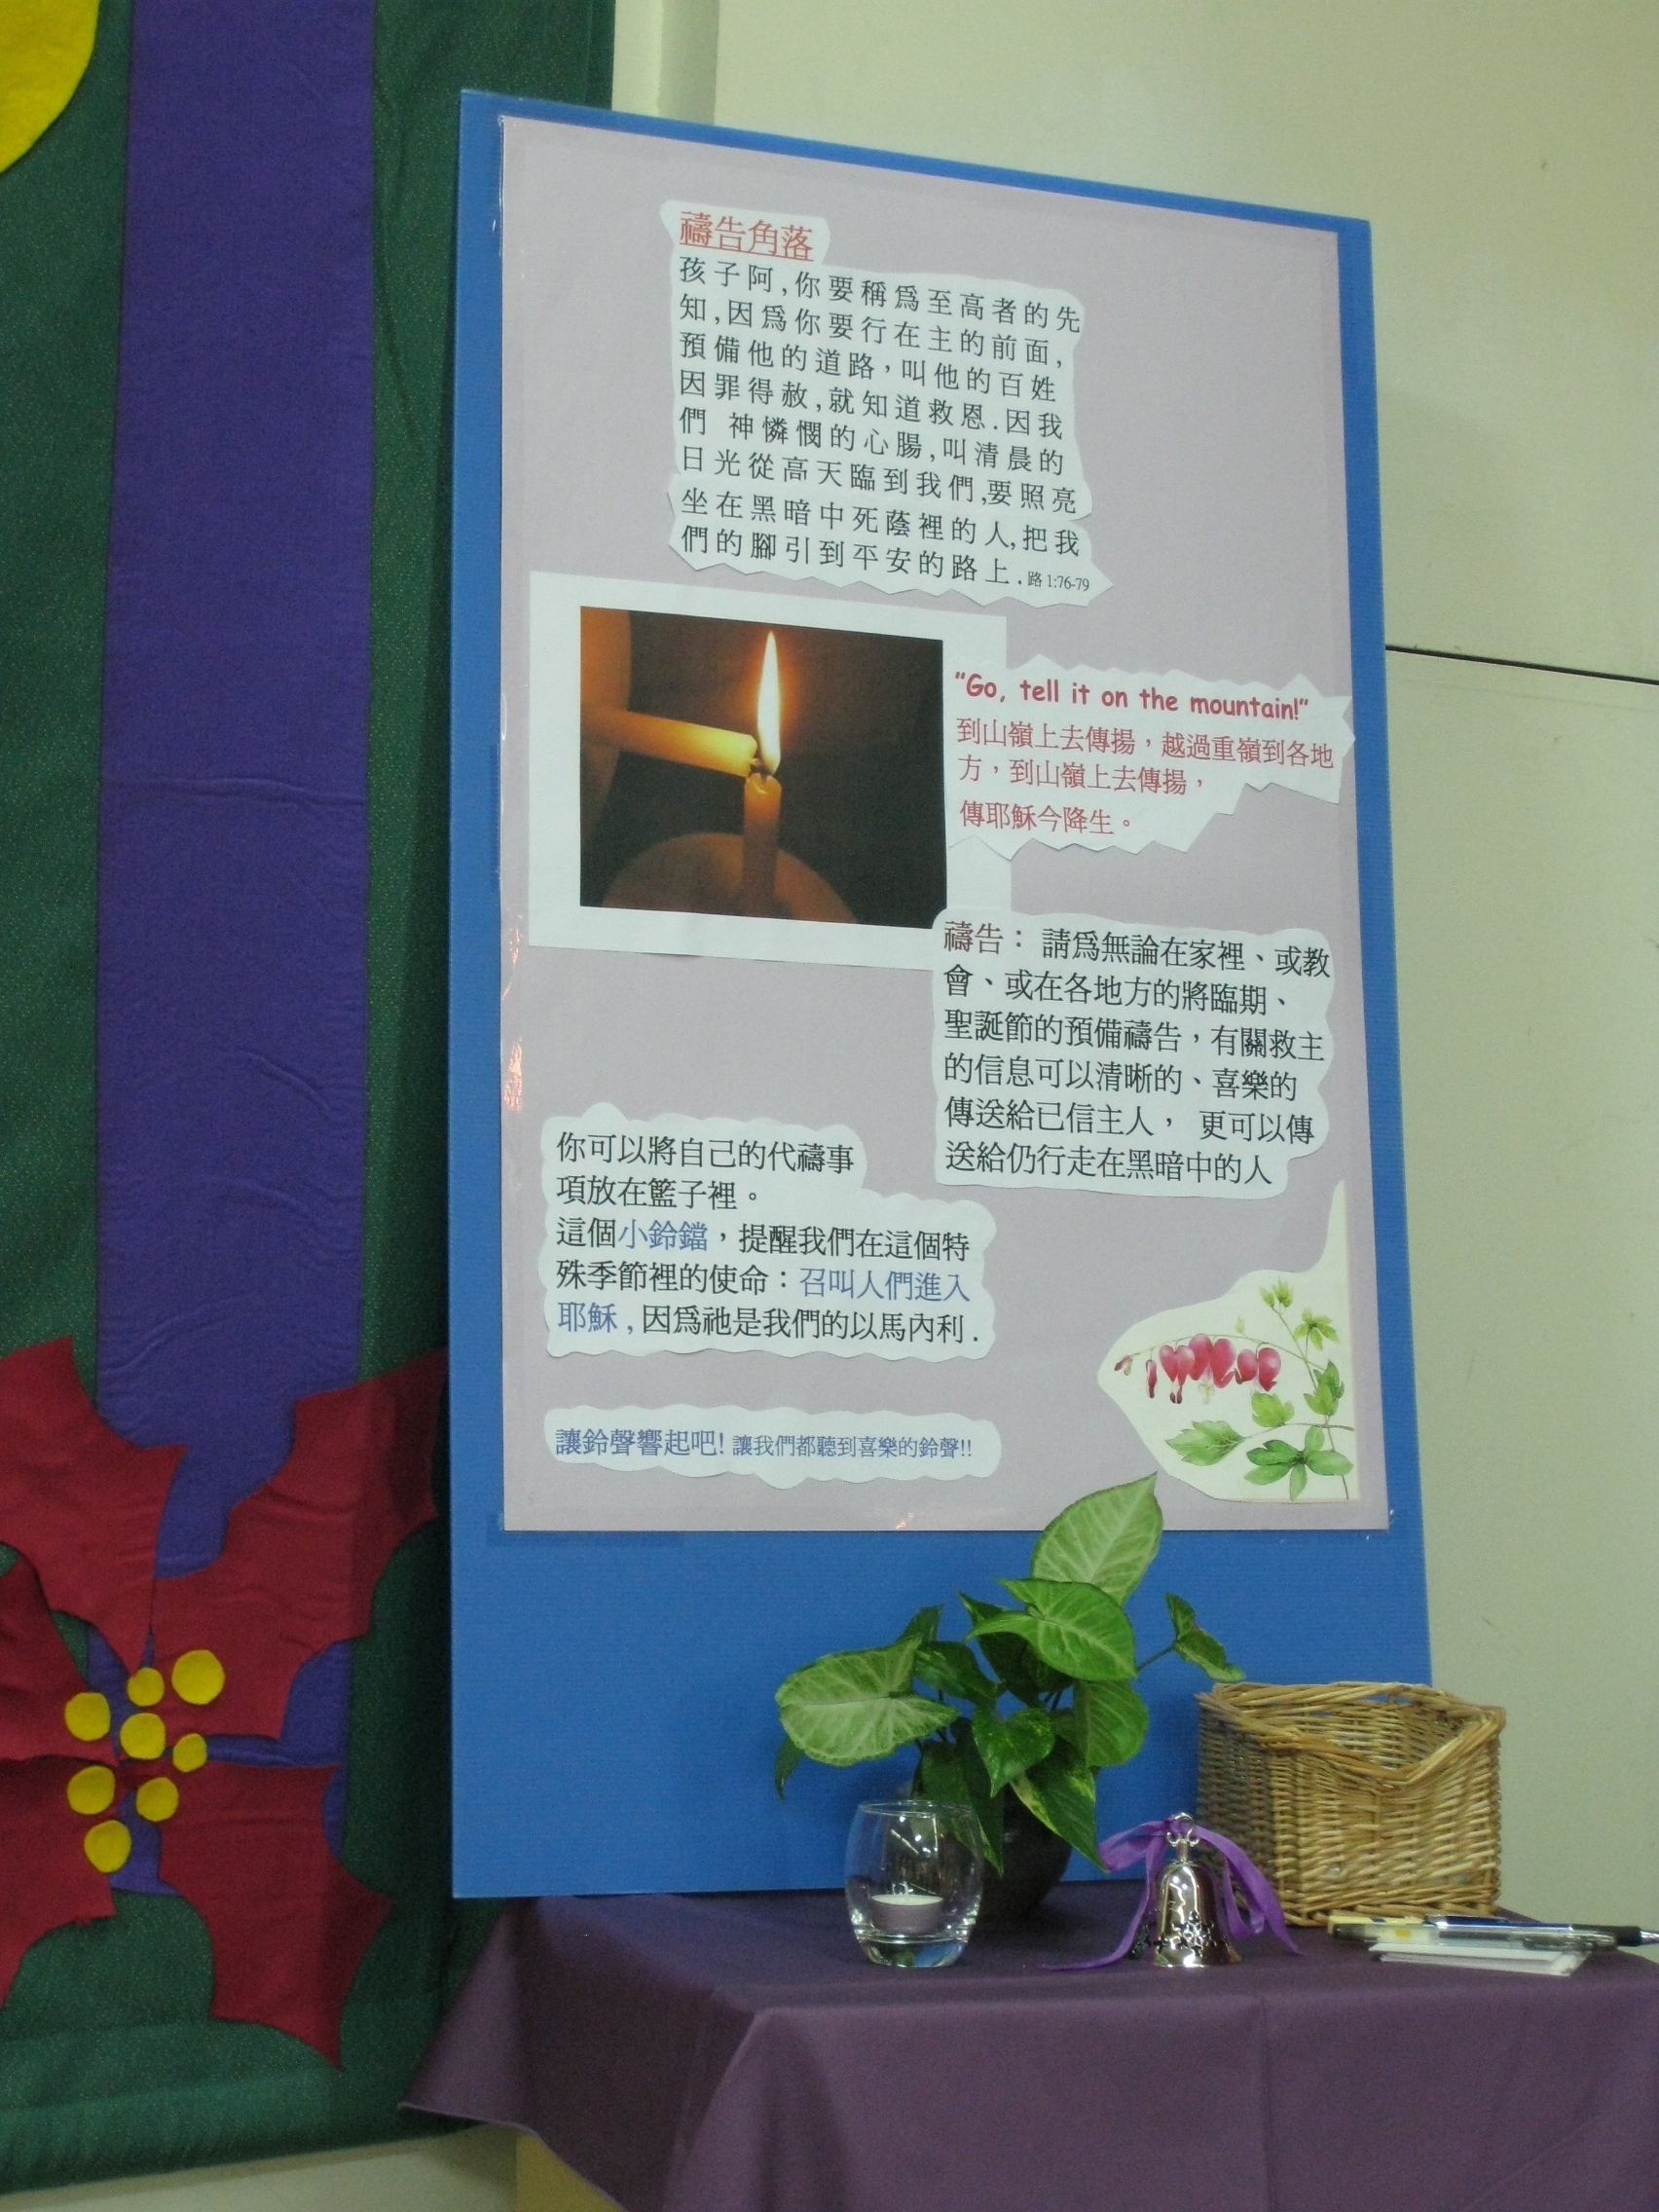 禱告角落
孩子阿,你要稱爲至高者的先
知,因爲你要行在主的前面,
預備他的道路，叫他的百姓
因罪得赦,就知道救恩.因我
們 神憐憫的心腸,叫清晨的
日光從高天臨到我們,要照亮
坐在黑暗中死蔭裡的人,把我
們的腳引到平安的路上.路 1:76-79
"Go, tell it on the mountain!"
到山嶺上去傳揚，越過重嶺到各地
方，到山嶺上去傳揚，
傳耶穌今降生。
禱告： 請爲無論在家裡、或教
會、或在各地方的將臨期、
聖誕節的預備禱告，有關救主
的信息可以清晰的、喜樂的
傳送給已信主人， 更可以傳
送給仍行走在黑暗中的人
你可以將自己的代禱事
項放在籃子裡。
這個小鈴鐺，提醒我們在這個特
殊季節裡的使命：召叫人們進入
耶穌,因爲祂是我們的以馬內利.
讓鈴聲響起吧! 讓我們都聽到喜樂的鈴聲!!